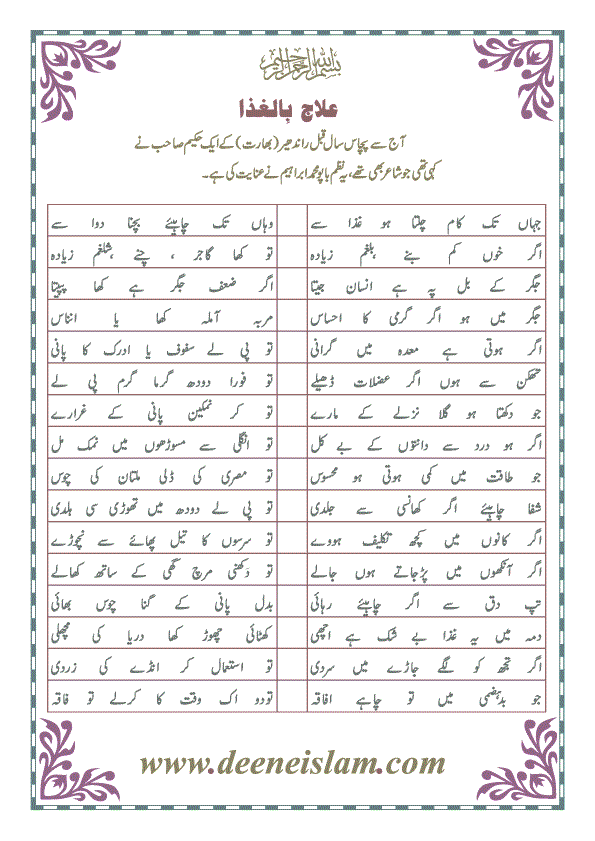 بسم اللہ الرحمن الرحیم
علاج بالغذا
آج سے پچاس سال قبل راندھیر (بھارت) کے ایک حکیم صاحب نے
کہی تھی جو شاعر بھی تھے، یہ نظم باپو محمد ابراہیم نے عنایت کی ہے۔
جہاں تک کام چلتا ہو غذا سے وہاں تک چاہیئے بچنا دوا سے
اگر خوں کم بنے ،بلغم زیادہ تو کھا گاجر ، چنے ،شلغم زیادہ
جگر کے بل پہ ہے انسان جیتا اگر ضعف جگر ہے کھا پپیتا
جگر میں ہو اگر گرمی کا احساس مربہ آملہ کھا یا انناس
اگر ہوتی ہے معدہ میں گرانی تو پی لے سفوف یا ادرک کا پانی
تھکن سے ہوں اگر عضلات ڈھیلے تو فورا دودھ گرما گرم پی لے
جو دکھتا ہو گلا نزلے کے مارے تو کر نمکین پانی کے غرارے
اگر ہو درد سے دانتوں کے بے کل تو انگلی سے مسوڑھوں میں نمک مل
جو طاقت میں کمی ہوتی ہو محسوس تو مصری کی ڈلی ملتان کی چوس
شفا چاہیئے اگر کھانسی سے جلدی تو پی لے دودھ میں تھوڑی سی ہلدی
اگر کانوں میں کچھ تکلیف ہووے تو سرسوں کا تیل پھائے سے نچوڑے
اگر آنکھوں میں پڑجاتے ہوں جالے تو دکھنی مرچ گھی کے ساتھ کھالے
تپ دق سے اگر چاہیئے رہائی بدل پانی کے گنا چوس بھائی
دمہ میں یہ غذا بے شک ہے اچھی کھٹائی چھوڑ کھا دریا کی مچھلی
اگر تجھ کو لگے جاڑے میں سردی تو استعمال کر انڈے کی زردی
جو بدہضمی میں تو چاہے افاقہ تودو اک وقت کا کرلے تو فاقہ
www.deeneislam.com